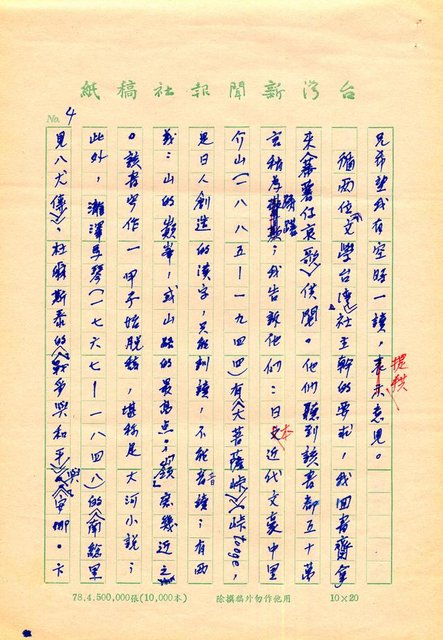 台灣新聞報社稿紙
No. 4
兄希望我有空時一讀，提供意見。
循兩位《文學台灣》社主幹的要求，我回書齋拿
來《蕃薯仔哀歌》供閱。他們聽到該書都五十萬
言稍為躊躇；我告訴他們：日本近代文豪中里
介山（一八八五－一九四四）有《大菩薩峠》（峠tooge，
是日人創造的漢字，只能訓讀，不能音讀；有兩
義：山的巔峯，或山路的最高點；「嶺」庶幾近之
。該書寫作一甲子始脫稿，堪稱是大河小說；
此外，瀧澤馬琴（一七六七－一八四八）的《南總里
見八犬傳》、杜爾斯泰的《戰爭與和平》與《安娜·卡
78.4.500,000張(10,000本)
除撰稿片勿作他用
10×20